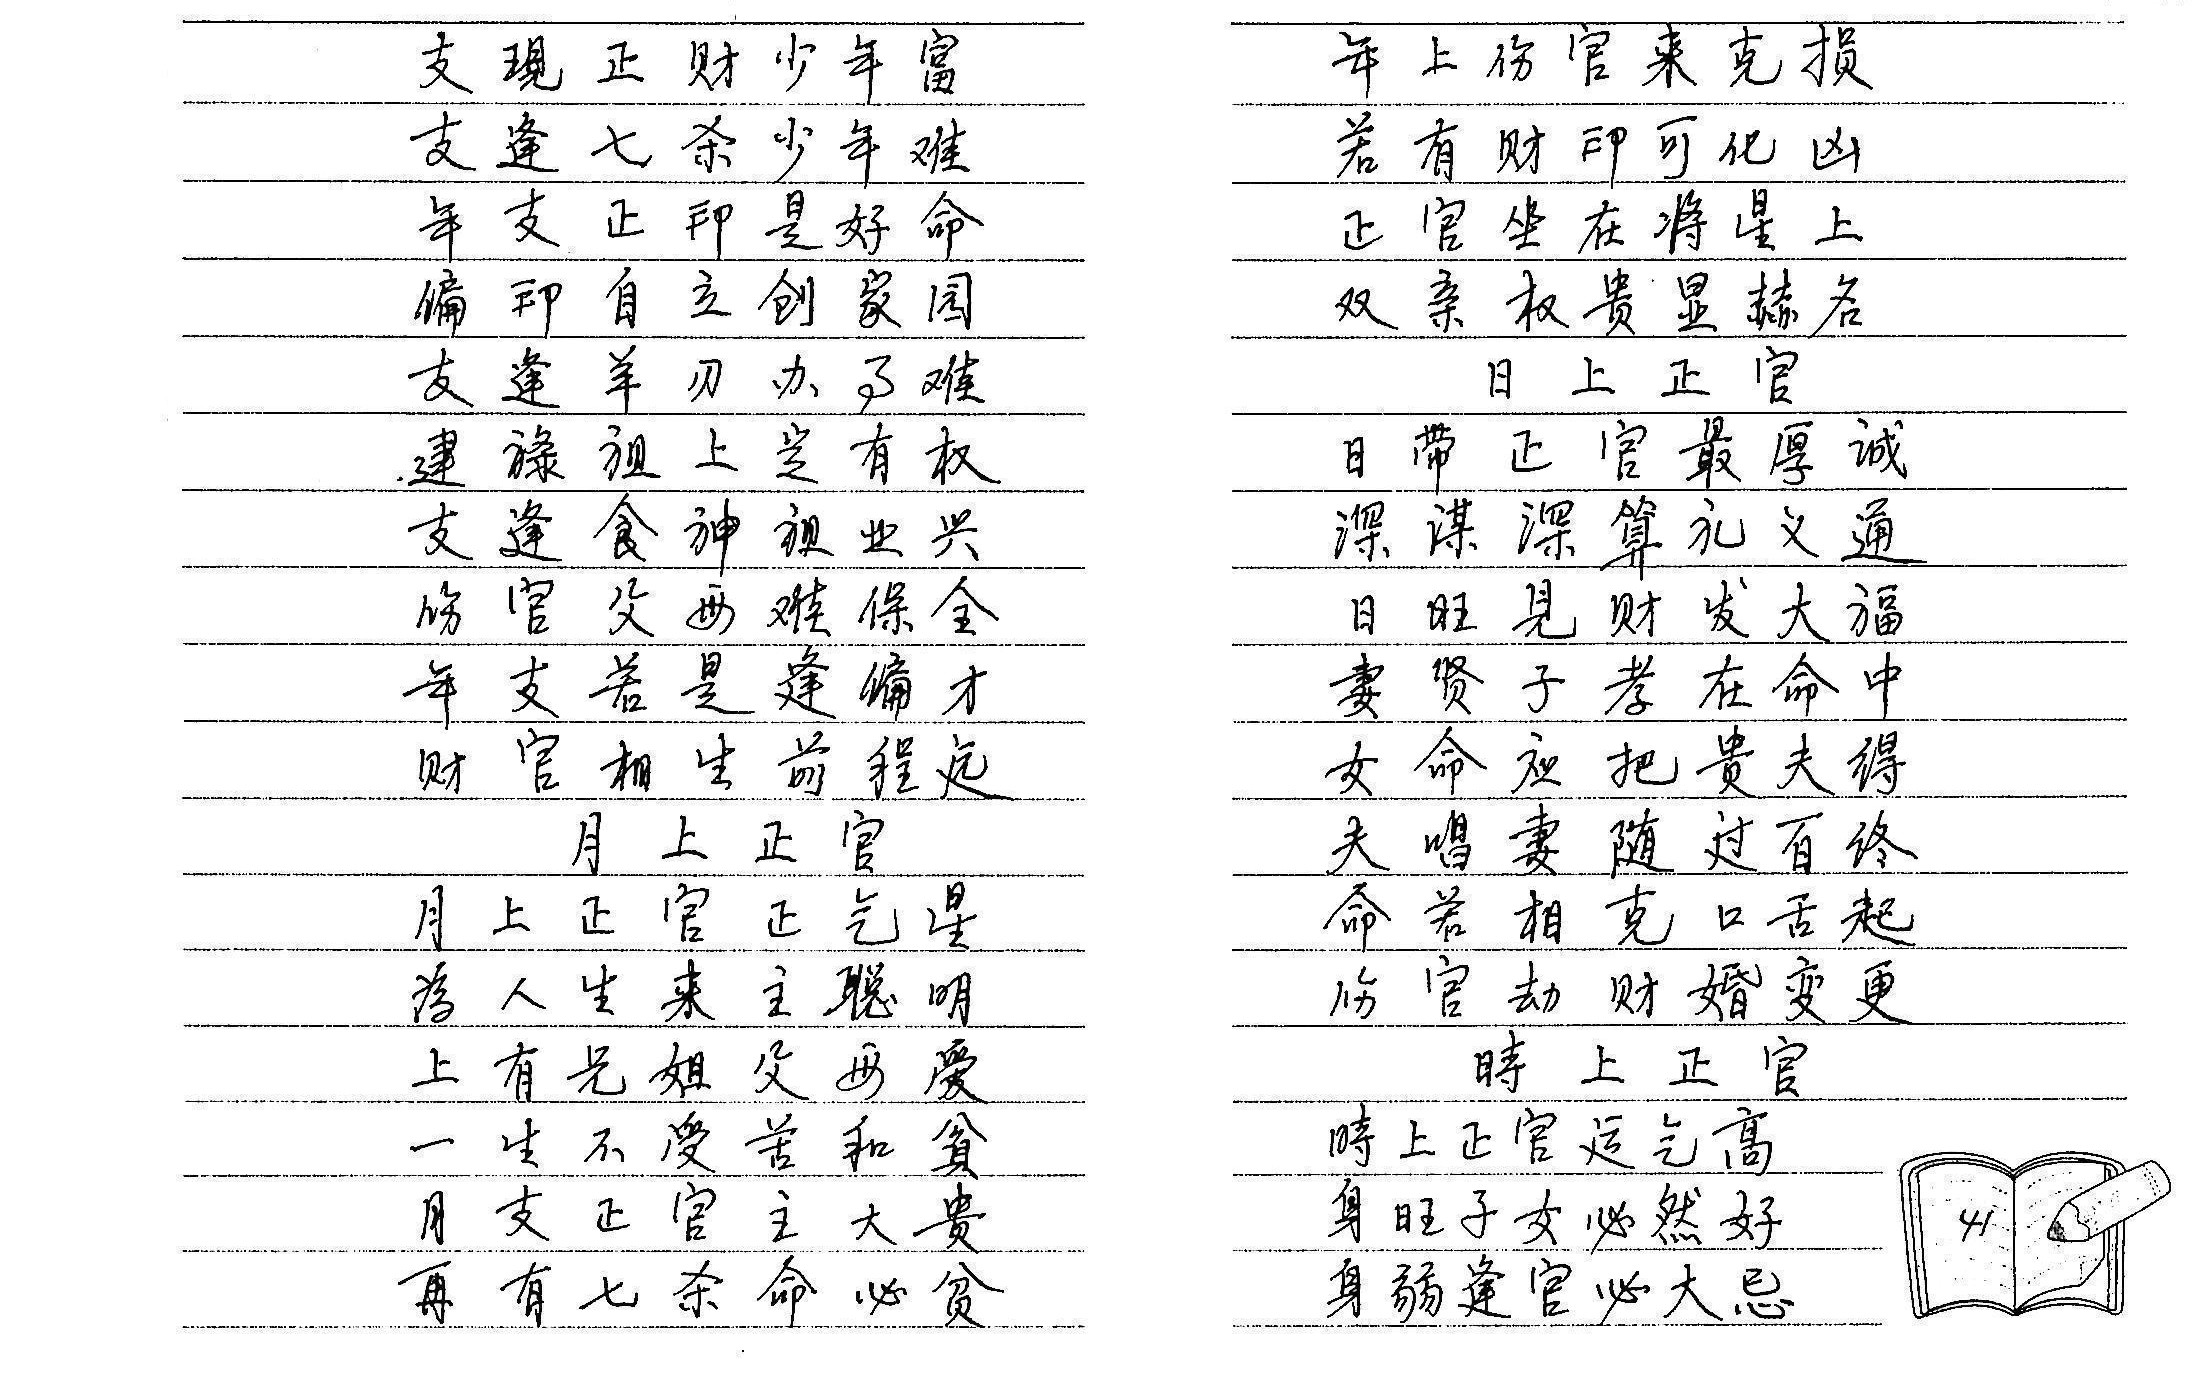 支現正财少年富
支逢七杀少年难
年支正印是好命
偏印自立创家园
支逢羊刃办事难
建祿祖上定有权
支逢食神祖业兴
伤官父母难保全
年支若是逢偏才
财官相生前程远
月上正官
月上正官正气星
为人生来主聪明
上有兄姐父母爱
一生不受苦和贫
月支正官主大贵
再有七杀命必贫
年上伤官来克损
若有财印可化凶
正官坐在将星上
双亲权贵显赫名
日上正官
日带正官最厚诚
深谋深算礼义通
日旺見财发大福
妻贤子孝在命中
女命应把贵夫得
夫唱妻随过百终
命若相克口舌起
伤官劫财婚变更
時上正官
時上正官运气高
身旺子女必然好
身弱逢官必大忌
41